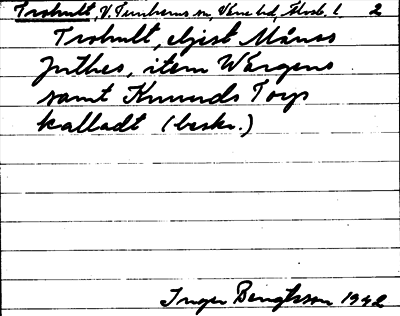 Trohult, V. Torsås sn, Vene hd, Ålvsb. l. 2
Trohult, eljest Månss
Juthes, item Wargens
samt Knuds Torp
kalladt (beskr.)
Inger Bengtsson 1942